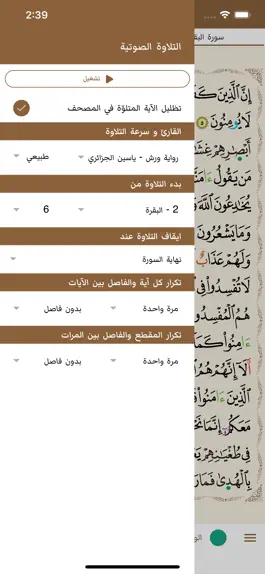 2:39
التلاوة الصوتية
تشغيل
تظليل الآية المتلوّة في المصحف
القارئ و سرعة التلاوة
رواية ورش - ياسين الجزائري
طبيعي
بدء التلاوة من
2 - البقرة
6
ايقاف التلاوة عند
نهاية السورة
تكرار كل آية والفاصل بين الآيات
مرة واحدة
بدون فاصل
تكرار المقطع والفاصل بين المرات
مرة واحدة
بدون فاصل
سورة البق
إِنَّ ٱلَّذِينَ كَ
لَا يُومِنُونَ
أَبْصَٰرِهِمْ غِشَ
مَنْ يَّقُولُ ءَامَنَّا
يُخَٰدِعُونَ ٱللَّهَ وَ
وَمَا يَشْعُرُونَ
وَلَهُمْ عَذَابٌ
لَا تُفْسِدُواْ فِي
هُمُ ٱلْمُفْسِدُو
ءَامِنُواْ كَمَا
أَلَآ إِنَّهُمْ هُمُ
ٱلَّذِينَ ءَامَنُواْ
مَعَكُمْ إِنَّمَا نَحْ
فِي طُغْيَٰنِهِمْ يَعْ
بِالْهُدَىٰ فَمَا رَ